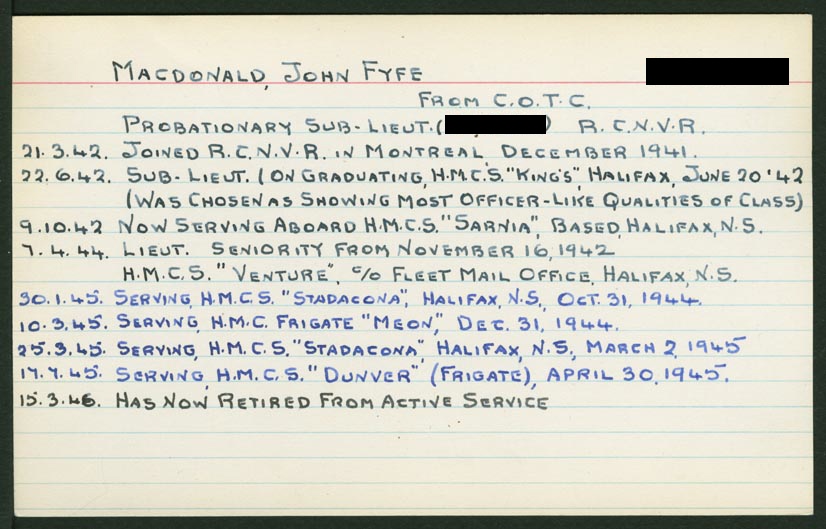 MACDONALD, JOHN FYFE
FROM C.O.T.C.
PROBATIONARY SUB-LIEUT. ( ) R.C.N.V.R.
21.3.42. JOINED R.C.N.V.R. IN MONTREAL, DECEMBER 1941.
22.6.42. SUB-LIEUT. (ON GRADUATING, H.M.C.S. "KING'S", HALIFAX, JUNE 20 '42
(WAS CHOSEN AS SHOWING MOST OFFICER-LIKE QUALITIES OF CLASS)
9.10.42 NOW SERVING ABOARD H.M.C.S. "SARNIA", BASED, HALIFAX, N.S.
7.4.44. LIEUT. SENIORITY FROM NOVEMBER 16, 1942
H.M.C.S. "VENTURE", c/o FLEET MAIL OFFICE, HALIFAX, N.S.
30.1.45. SERVING, H.M.C.S. "STADACONA", HALIFAX, N.S., OCT. 31, 1944.
10.3.45. SERVING, H.M.C. FRIGATE "MEON," DEC. 31, 1944.
25.3.45. SERVING, H.M.C.S. "STADACONA", HALIFAX, N.S., MARCH 2, 1945
17.7.45. SERVING, H.M.C.S. "DUNVER" (FRIGATE), APRIL 30, 1945.
15.3.46. HAS NOW RETIRED FROM ACTIVE SERVICE